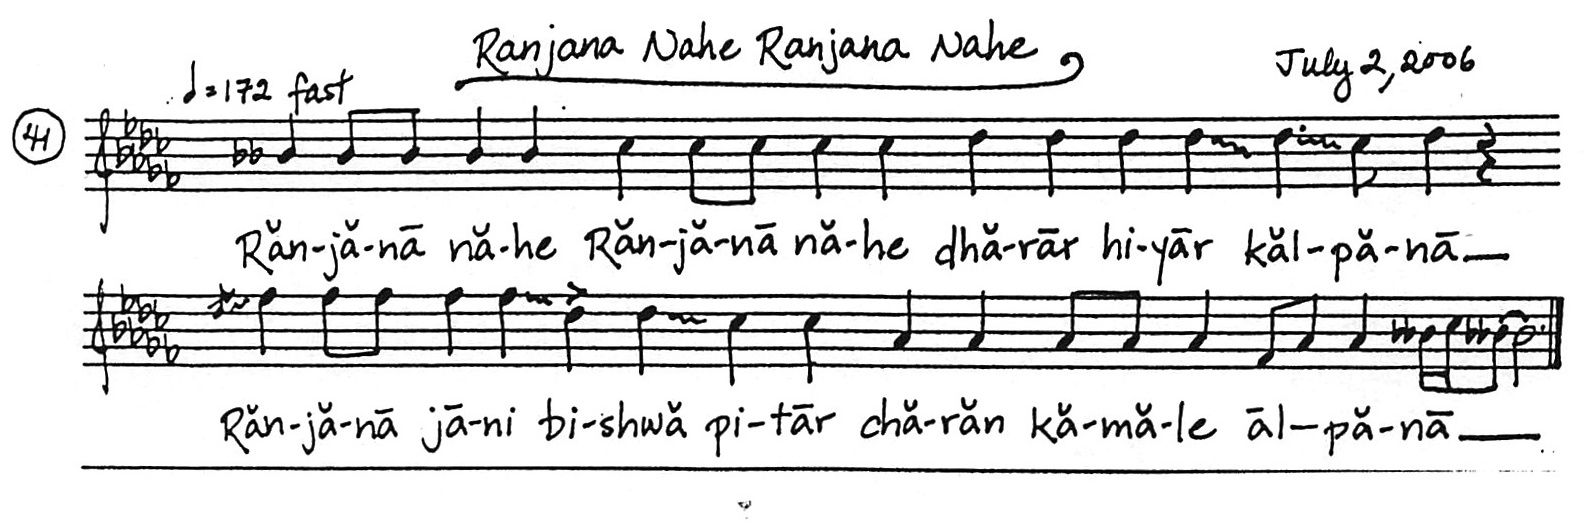 Ranjana Nahe Ranjana Nahe
July 2, 2006
♩=172 fast
41
Răn-jă-nā nă-he Răn-jă-nā nă-he dhă-rār hi-yār kăl-pă-nā—
Răn-jă-nā jā-ni bi-shwă pi-tār chă-răn kă-mă-le āl-pă-nā—